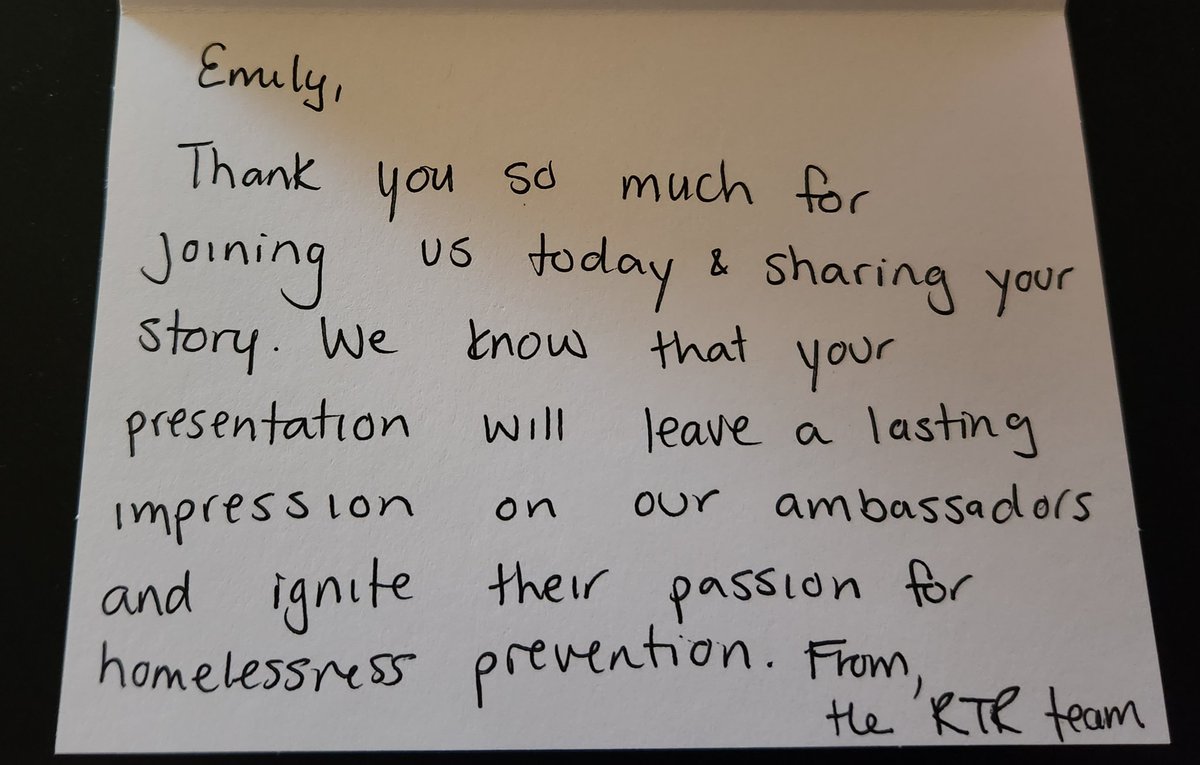 Emily,
Thank you so much for
joining us today & sharing your
story. We know that your
presentation will leave a lasting
impression on our ambassadors
and ignite their passion for
homelessness prevention. From,
the RTR team